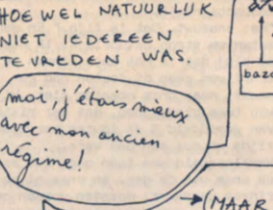 HOEWEL NATUURLIJK
NIET IEDEREEN
TEVREDEN WAS.
moi, j'étais mieux
avec mon ancien
régime!
→(MAAR